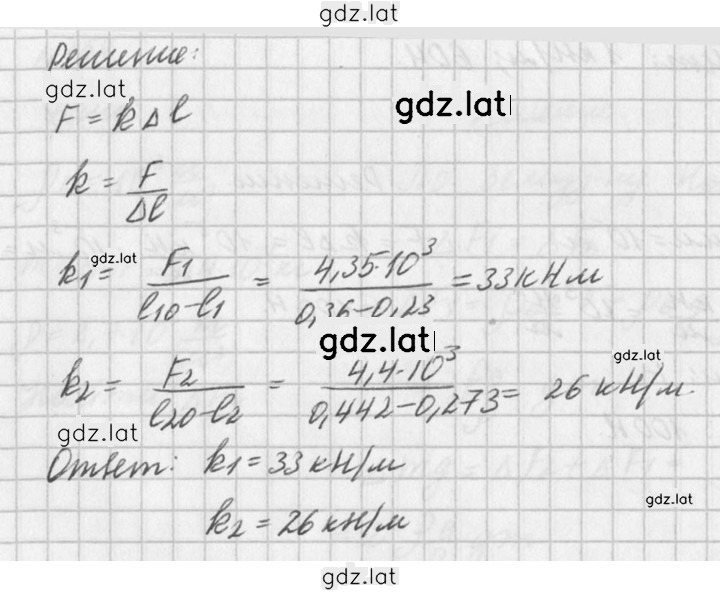 gdz.lat
Решение:
gdz.lat
F = k Δl
gdz.lat
k = F/Δl
gdz.lat
k1 = F1/(l10-l1) = 4,35·10³/(0,36-0,23) = 33кНм
gdz.lat
gdz.lat
k2 = F2/(l20-l2) = 4,4·10³/(0,442-0,273) = 26 кН/м.
gdz.lat
Ответ: k1 = 33 кН/м
k2 = 26 кН/м
gdz.lat
gdz.lat